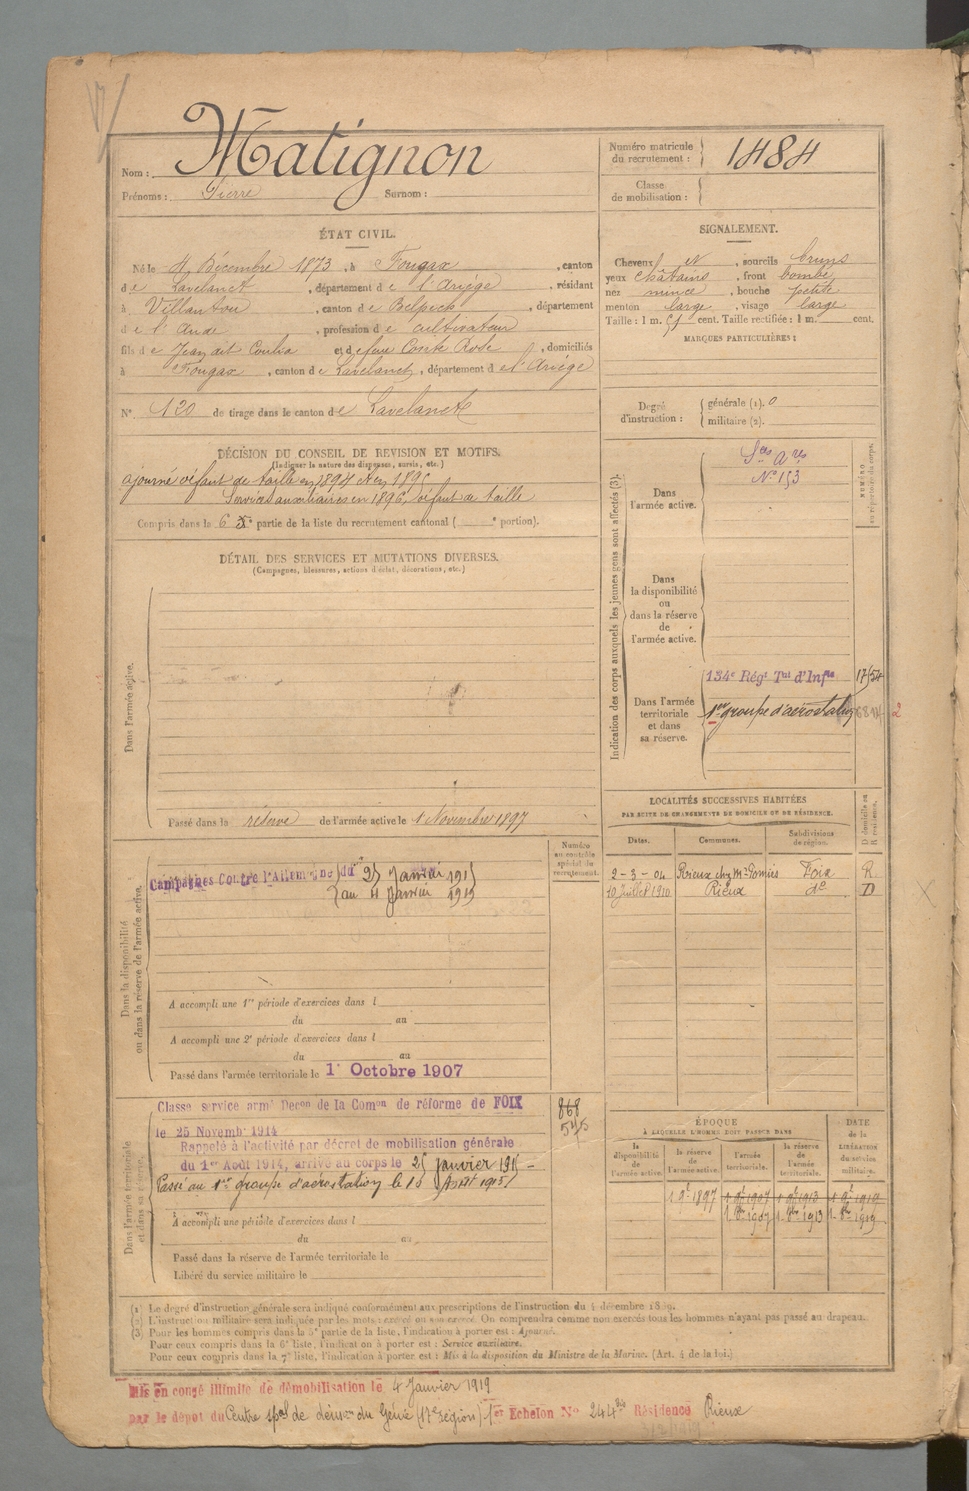 Nom : Matignon
Prénoms : Pierre Surnom :
Numéro matricule du recrutement : 1484
Classe de mobilisation :
ÉTAT CIVIL.
Né le 4 Décembre 1873, à Fougax, canton
de Lavelanet, département de l'Ariège, résidant
à Villautou, canton de Belpech, département
de l'Aude, profession de cultivateur
fils de Jean dit Coulia et de feue Comte Rose, domiciliés
à Fougax, canton de Lavelanet, département de l'Ariège
N° 120 de tirage dans le canton de Lavelanet
SIGNALEMENT.
Cheveux et, sourcils bruns
yeux châtains, front bombé
nez mince, bouche petite
menton large, visage large
Taille : 1 m. 51 cent. Taille rectifiée : 1 m. cent.
MARQUES PARTICULIÈRES :
Degré d'instruction : générale (1). 0
militaire (2).
DÉCISION DU CONSEIL DE REVISION ET MOTIFS.
(Indiquer la nature des dispenses, sursis, etc.)
ajourné défaut de taille en 1894 et en 1895
Services auxiliaires en 1896, défaut de taille
Compris dans la 6e partie de la liste du recrutement cantonal ( e portion).
DÉTAIL DES SERVICES ET MUTATIONS DIVERSES.
(Campagnes, blessures, actions d'éclat, décorations, etc.)
Dans l'armée active.
Passé dans la réserve de l'armée active le 1 Novembre 1897
Indication des corps auxquels les jeunes gens sont affectés (3).
NUMÉRO au répertoire du corps.
Dans l'armée active.
Sces Ares
N° 153
Dans la disponibilité ou dans la réserve de l'armée active.
Dans l'armée territoriale et dans sa réserve.
134e Régt Tal d'Infie 17/54
1er groupe d'aérostation
2
LOCALITÉS SUCCESSIVES HABITÉES
PAR SUITE DE CHANGEMENTS DE DOMICILE OU DE RÉSIDENCE.
Dates. Communes. Subdivisions de région. D domicile ou R résidence.
2-3-04 Rieux chez Mr Foix R
10 Juillet 1910 Rieux do D
Numéro au contrôle spécial du recrutement.
Dans la disponibilité ou dans la réserve de l'armée active.
Campagnes Contre l'Allemagne du 25 Janvier 1915
au 4 Janvier 1919
A accompli une 1re période d'exercices dans l
du au
A accompli une 2e période d'exercices dans l
du au
Passé dans l'armée territoriale le 1er Octobre 1907
Dans l'armée territoriale et dans sa réserve.
Classé service armé Décon de la Comon de réforme de FOIX
le 25 Novemb. 1914
Rappelé à l'activité par décret de mobilisation générale
du 1er Août 1914, arrivé au corps le 25 janvier 1915
Passé au 1er groupe d'aérostation le 15 Août 1915
868
545
A accompli une période d'exercices dans l
du au
Passé dans la réserve de l'armée territoriale le
Libéré du service militaire le
ÉPOQUE
A LAQUELLE L'HOMME DOIT PASSER DANS
DATE de la LIBÉRATION du service militaire.
la disponibilité de l'armée active. la réserve de l'armée active. l'armée territoriale. la réserve de l'armée territoriale.
1 9e 1897 1 9e 1907 1 9e 1913 1 9e 1919
1 8bre 1907 1 8bre 1913 1 8bre 1919
(1) Le degré d'instruction générale sera indiqué conformément aux prescriptions de l'instruction du 4 décembre 1889.
(2) L'instruction militaire sera indiquée par les mots : exercé ou non exercé. On comprendra comme non exercés tous les hommes n'ayant pas passé au drapeau.
(3) Pour les hommes compris dans la 5e partie de la liste, l'indication à porter est : Ajourné.
Pour ceux compris dans la 6e liste, l'indication à porter est : Service auxiliaire.
Pour ceux compris dans la 7e liste, l'indication à porter est : Mis à la disposition du Ministre de la Marine. (Art. 4 de la loi.)
Mis en congé illimité de démobilisation le 4 Janvier 1919
par le dépôt du Centre spal de du Génie (17e région) 1er Echelon N° 244 Résidence Rieux